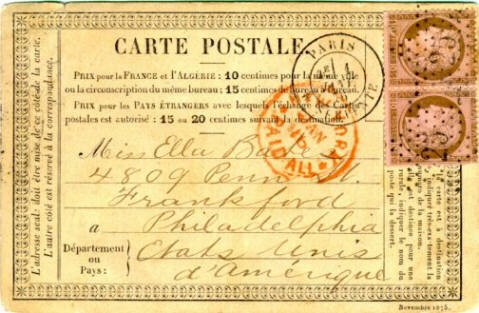 CARTE POSTALE.
PRIX pour la FRANCE et l'ALGÉRIE : 10 centimes pour la même ville
ou la circonscription du même bureau ; 15 centimes de bureau à bureau.
PRIX pour les PAYS ÉTRANGERS avec lesquels l'échange des Cartes
postales est autorisé : 15 ou 20 centimes suivant la destination.
Miss Ella
4809 Penn
Frankford
a Philadelphia
Département
ou
Pays :
Etats Unis
d'Amérique
L'adresse seule doit être mise de ce côté de la carte.
L'autre côté est réservé à la correspondance.
PARIS
PAID ALL
carte est à destination
indiquer très-exactement la
maison.
est destinée pour une
rurale, indiquer le nom du
poste qui la dessert.
Novembre 1875.